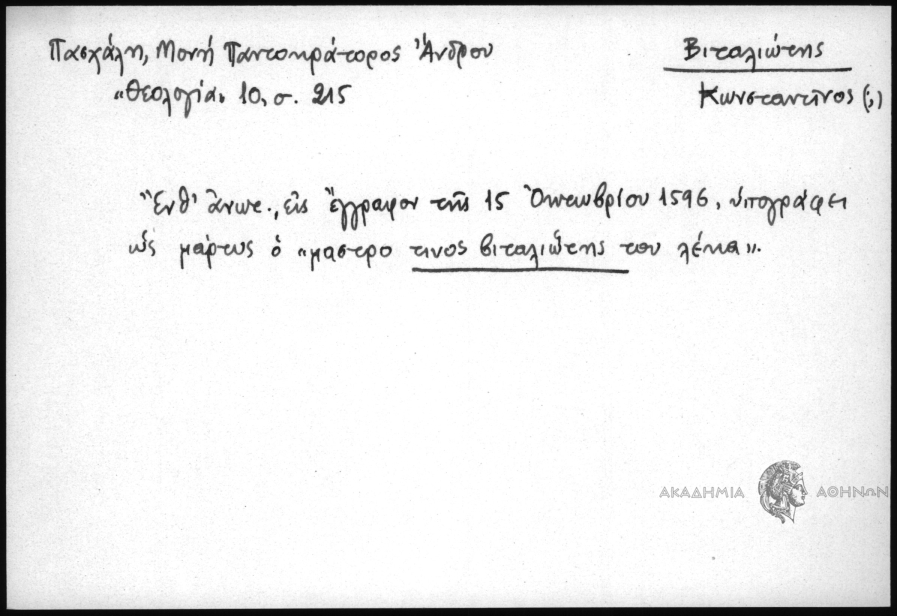 Πασχάλη, Μονή Παντοκράτορος Ἄνδρου
«Θεολογία» 10, σ. 215
Βιταλιώτης
Κωνσταντῖνος (;)
Ἔνθ' ἄνωτ., εἰς ἔγγραφον τῆς 15 Ὀκτωβρίου 1596, ὑπογράφει
ὡς μάρτυς ὁ «μαστρο τινος βιταλιὤτης του λέκα».
ΑΚΑΔΗΜΙΑ ΑΘΗΝΩΝ